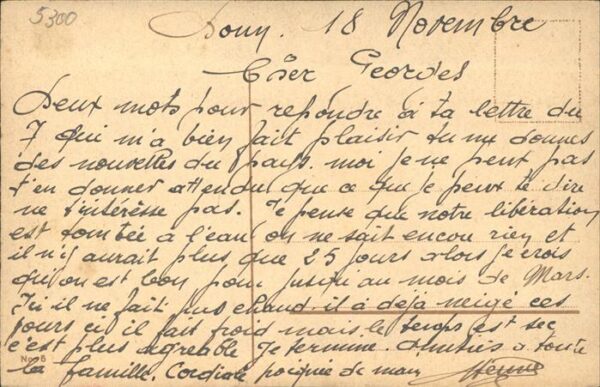 5300
Bonn, 18 Novembre
Cher Georges
Deux mots pour repondre à ta lettre du
7 qui m'a bien fait plaisir tu me donnes
des nouvelles du pays moi je ne peut pas
t'en donner attendu que ce que je peux te dire
ne t'intéresse pas. Je pense que notre libération
est tombée à l'eau on ne sait encore rien et
il n'y aurait plus que 25 jours alors je crois
qu'on est bon pour jusqu'au mois de Mars.
Ici il ne fait pas chaud il a dejà neigé ces
jours ci il fait froid mais le temps est sec
c'est plus agreable Je termine. Amitiés à toute
la famille. Cordiale poignée de main
No 6